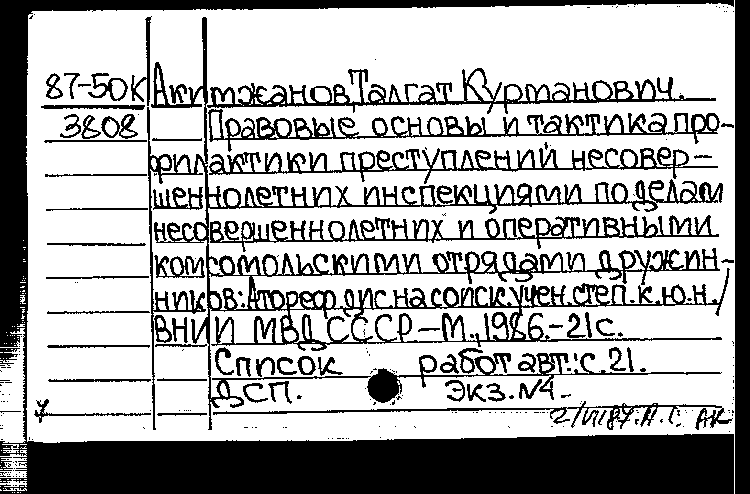 87-50К Акимжанов, Талгат Курманович.
3808 Правовые основы и тактика про-
филактики преступлений несовер-
шеннолетних инспекциями по делам
несовершеннолетних и оперативными
комсомольскими отрядами дружин-
ников: Автореф. дис. на соиск. учен. степ. к.ю.н. /
ВНИИ МВД СССР - М., 1986. - 21 с.
Список работ авт.: с. 21.
ДСП. Экз. №4. -